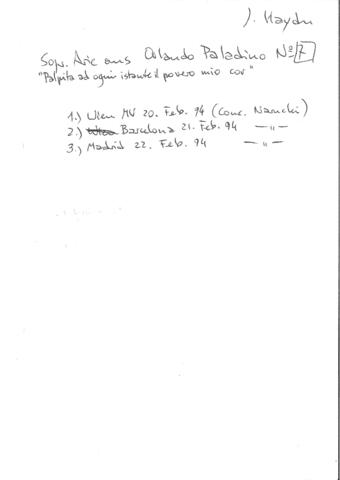 J. Haydn
Sop. Arie aus Orlando Paladino Nº 7
"Palpita ad ogni istante il povero mio cor"
1.) Wien MV 20. Feb. 94 (Conc.
2.) Barcelona 21. Feb. 94 — " —
3.) Madrid 22. Feb. 94 — " —